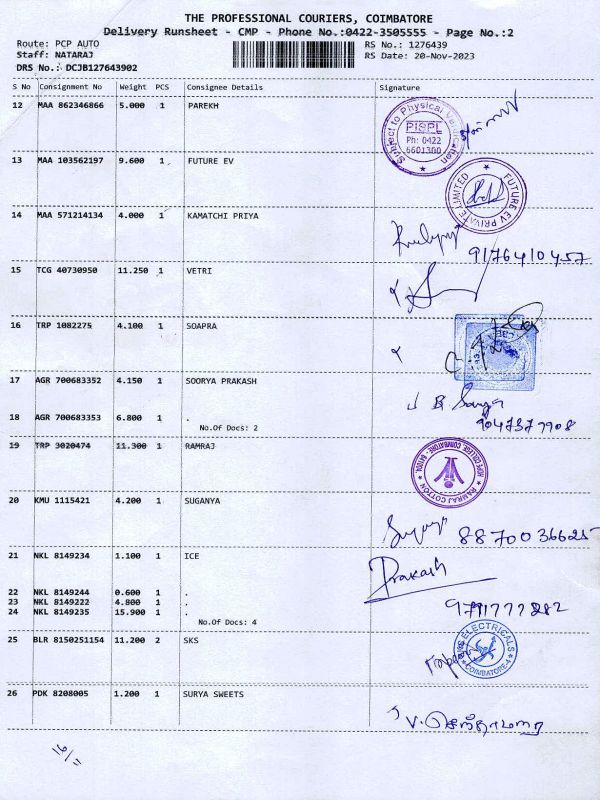 THE PROFESSIONAL COURIERS, COIMBATORE
Delivery Runsheet - CMP - Phone No.:0422-3505555 - Page No.:2
Route: PCP AUTO RS No.: 1276439
Staff: NATARAJ RS Date: 20-Nov-2023
DRS No.: DCJB127643902
S No Consignment No Weight PCS Consignee Details Signature
12 MAA 862346866 5.000 1 PAREKH
Subject to Physical Verification
PISPL
Ph: 0422
6601300
13 MAA 103562197 9.600 1 FUTURE EV
FUTURE EV PRIVATE LIMITED
14 MAA 571214134 4.000 1 KAMATCHI PRIYA
9176410457
15 TCG 40730950 11.250 1 VETRI
16 TRP 1082275 4.100 1 SOAPRA
17 AGR 700683352 4.150 1 SOORYA PRAKASH
18 AGR 700683353 6.800 1 .
No.Of Docs: 2
9047377908
19 TRP 3020474 11.300 1 RAMRAJ
HOPE COLLEGE, COIMBATORE - 641004
RAMRAJ COTTON
20 KMU 1115421 4.200 1 SUGANYA
8870036625
21 NKL 8149234 1.100 1 ICE
Prakash
22 NKL 8149244 0.600 1 .
23 NKL 8149222 4.800 1 .
24 NKL 8149235 15.900 1 .
No.Of Docs: 4
9791777282
25 BLR 8150251154 11.200 2 SKS
ELECTRICALS
COIMBATORE-4
26 PDK 8208005 1.200 1 SURYA SWEETS
V. செந்தாமரை